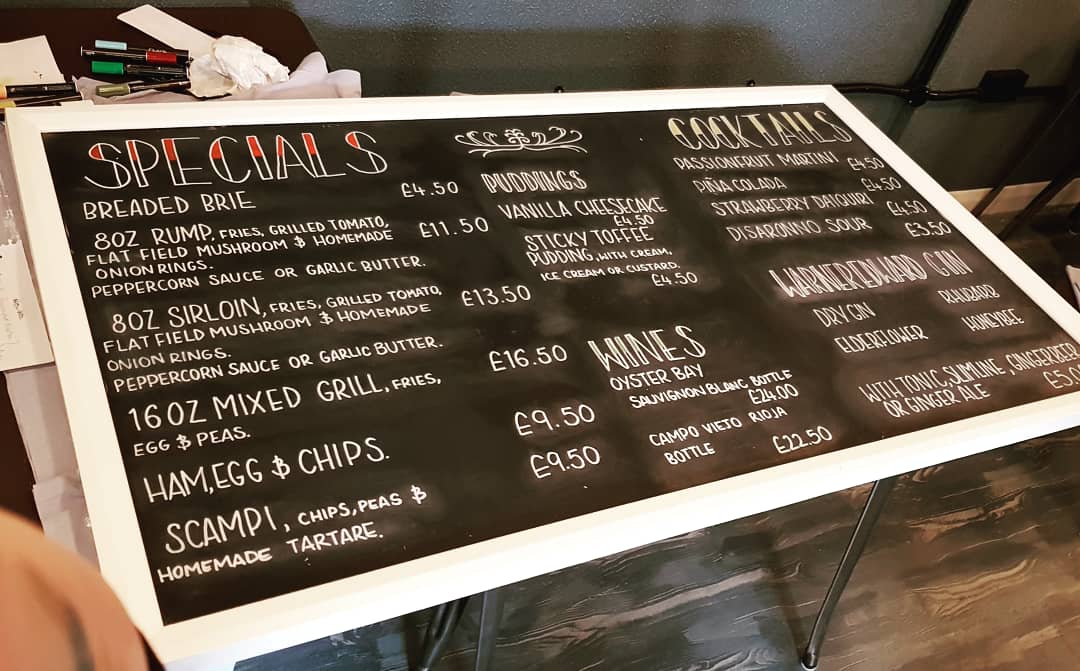 SPECIALS
BREADED BRIE £4.50
8OZ RUMP, FRIES, GRILLED TOMATO, £11.50
FLAT FIELD MUSHROOM & HOMEMADE
ONION RINGS.
PEPPERCORN SAUCE OR GARLIC BUTTER.
8OZ SIRLOIN, FRIES, GRILLED TOMATO, £13.50
FLAT FIELD MUSHROOM & HOMEMADE
ONION RINGS.
PEPPERCORN SAUCE OR GARLIC BUTTER.
16OZ MIXED GRILL, FRIES, £16.50
EGG & PEAS.
HAM, EGG & CHIPS. £9.50
SCAMPI, CHIPS, PEAS & £9.50
HOMEMADE TARTARE.
PUDDINGS
VANILLA CHEESECAKE
£4.50
STICKY TOFFEE
PUDDING, WITH CREAM,
ICE CREAM OR CUSTARD.
£4.50
WINES
OYSTER BAY
SAUVIGNON BLANC BOTTLE
£24.00
CAMPO VIETO RIOJA
BOTTLE £22.50
COCKTAILS
PASSIONFRUIT MARTINI £4.50
PIÑA COLADA £4.50
STRAWBERRY DAIQUIRI £4.50
DISARONNO SOUR £3.50
WARNER EDWARD GIN
DRY GIN RHUBARB
ELDERFLOWER HONEYBEE
WITH TONIC, SLIMLINE, GINGERBEER
OR GINGER ALE